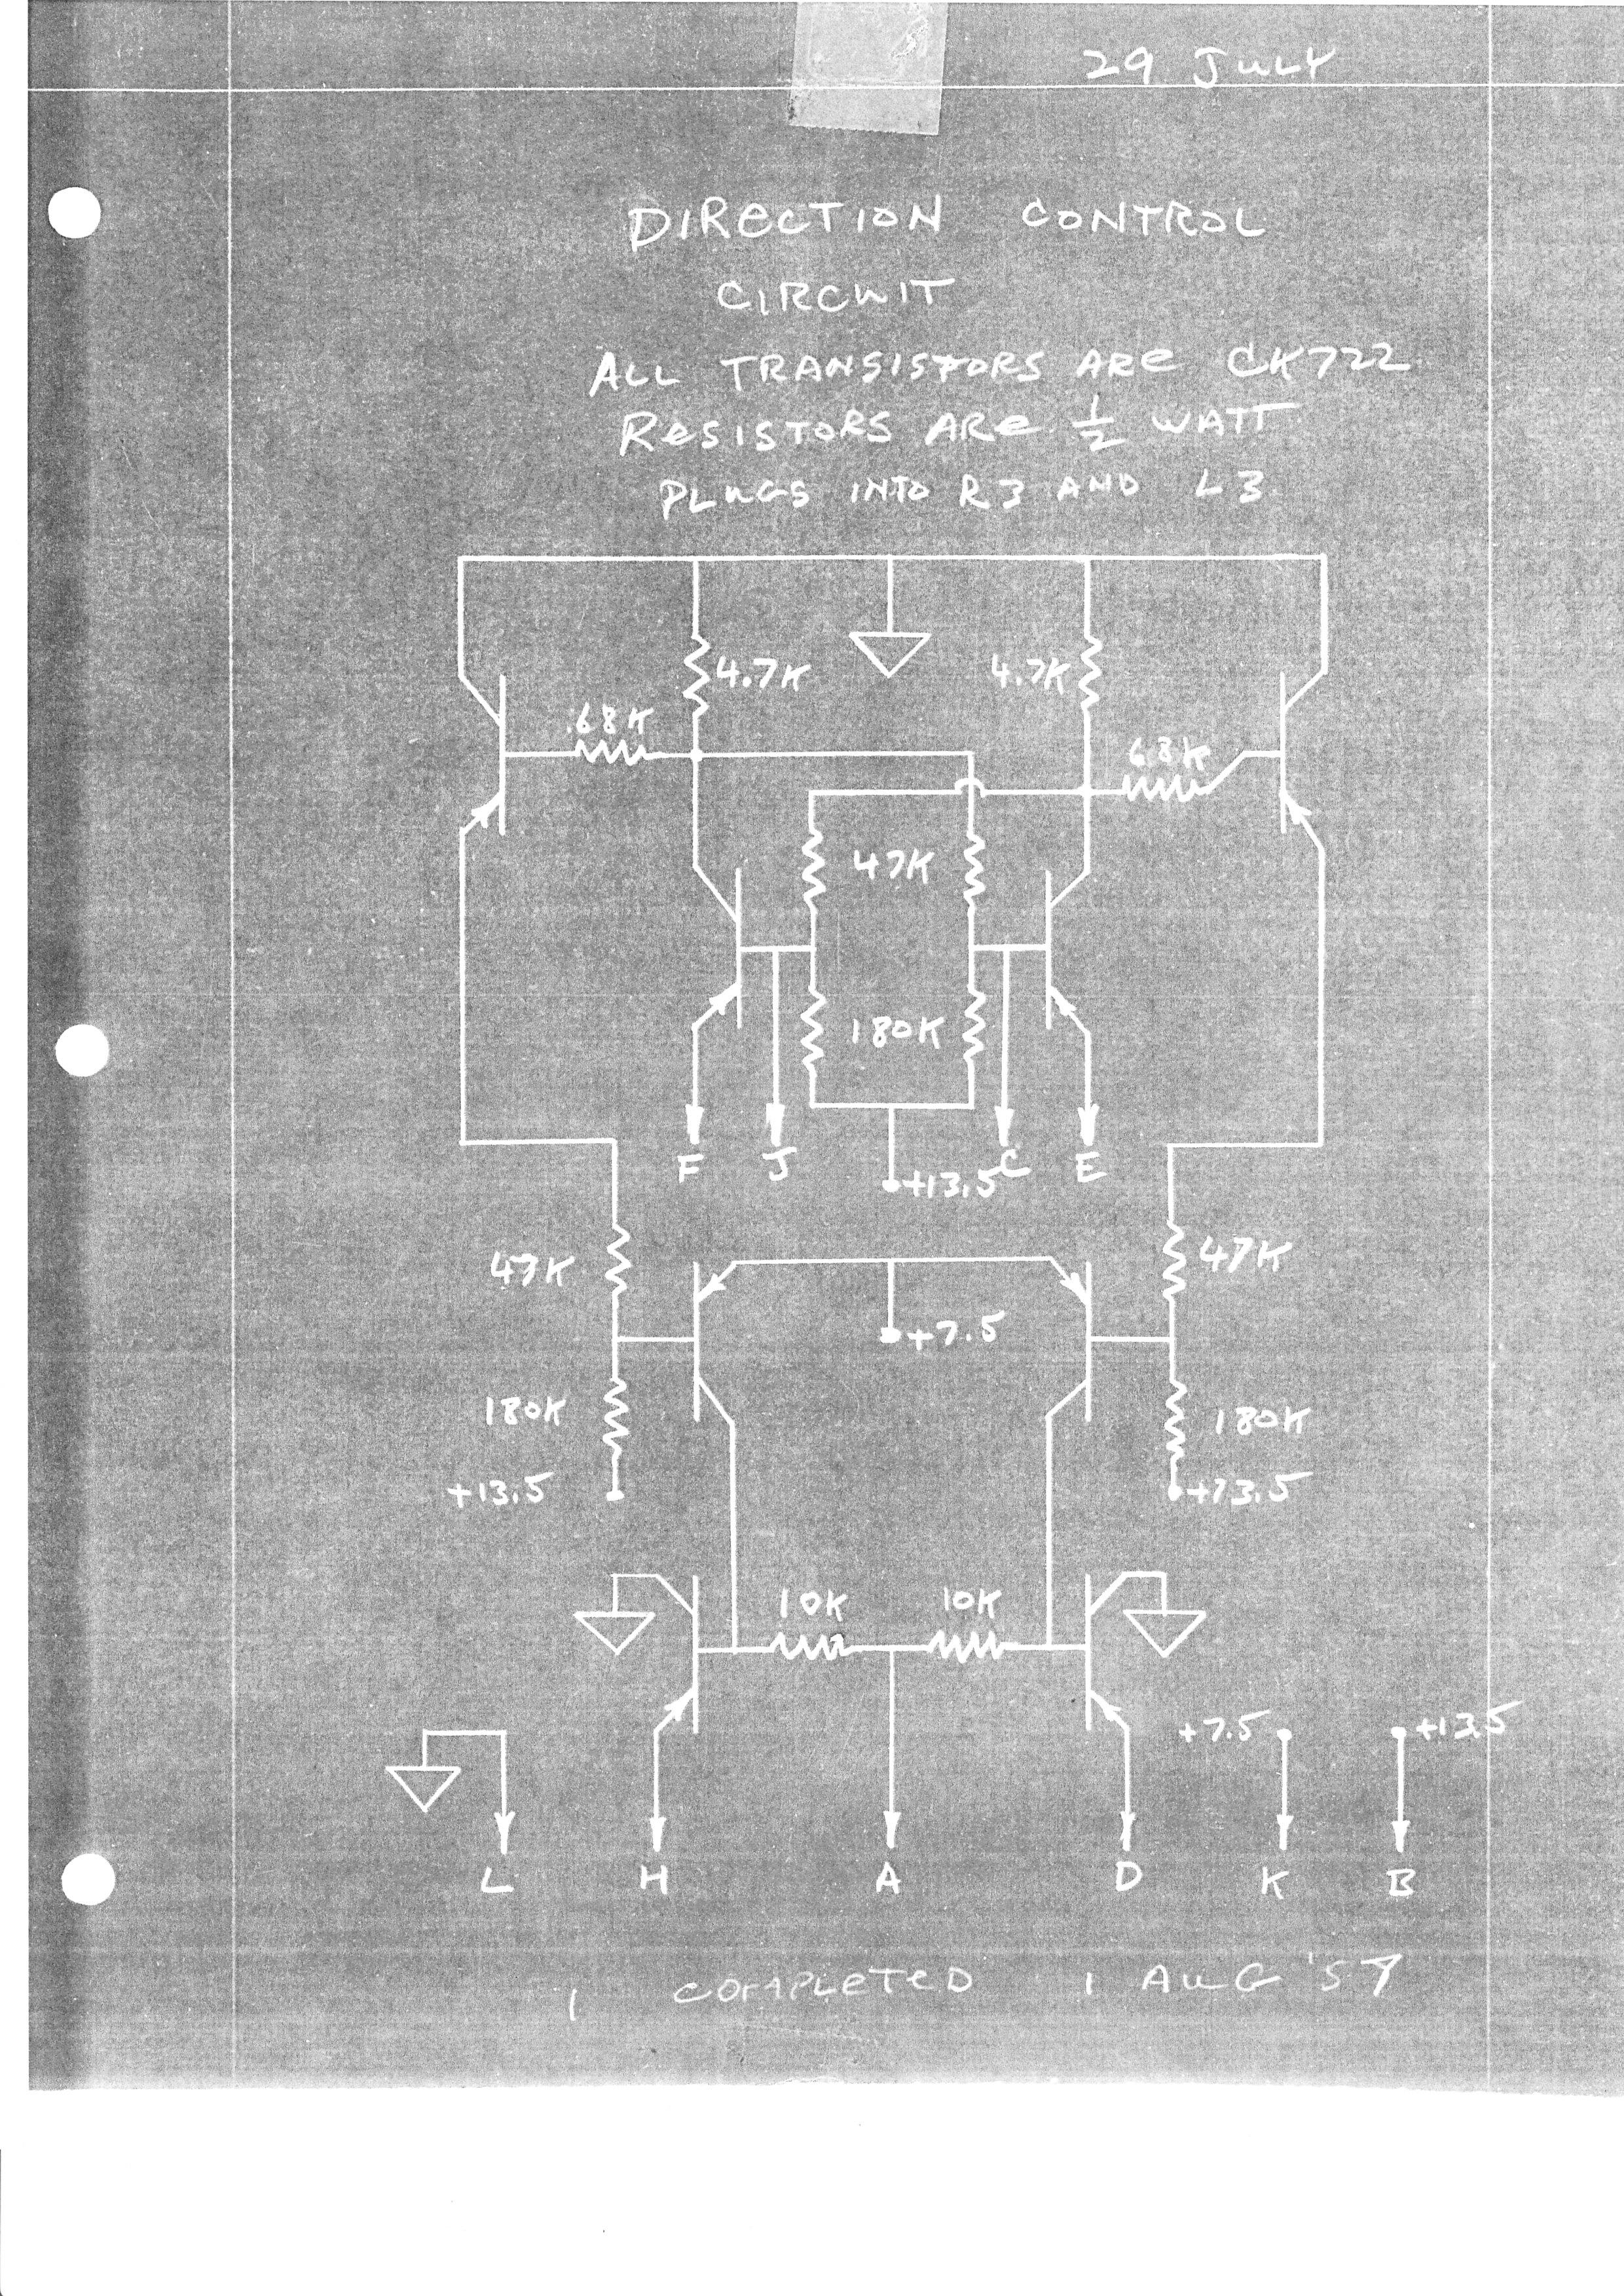 29 JULY
DIRECTION CONTROL
CIRCUIT
ALL TRANSISTORS ARE CK722
RESISTORS ARE 1/2 WATT
PLUGS INTO R3 AND L3
4.7K 4.7K
68K 68K
47K
180K
F J +13.5 C E
47K 47K
+7.5
180K 180K
+13.5 +13.5
10K 10K
+7.5 +13.5
L H A D K B
1 COMPLETED 1 AUG '57